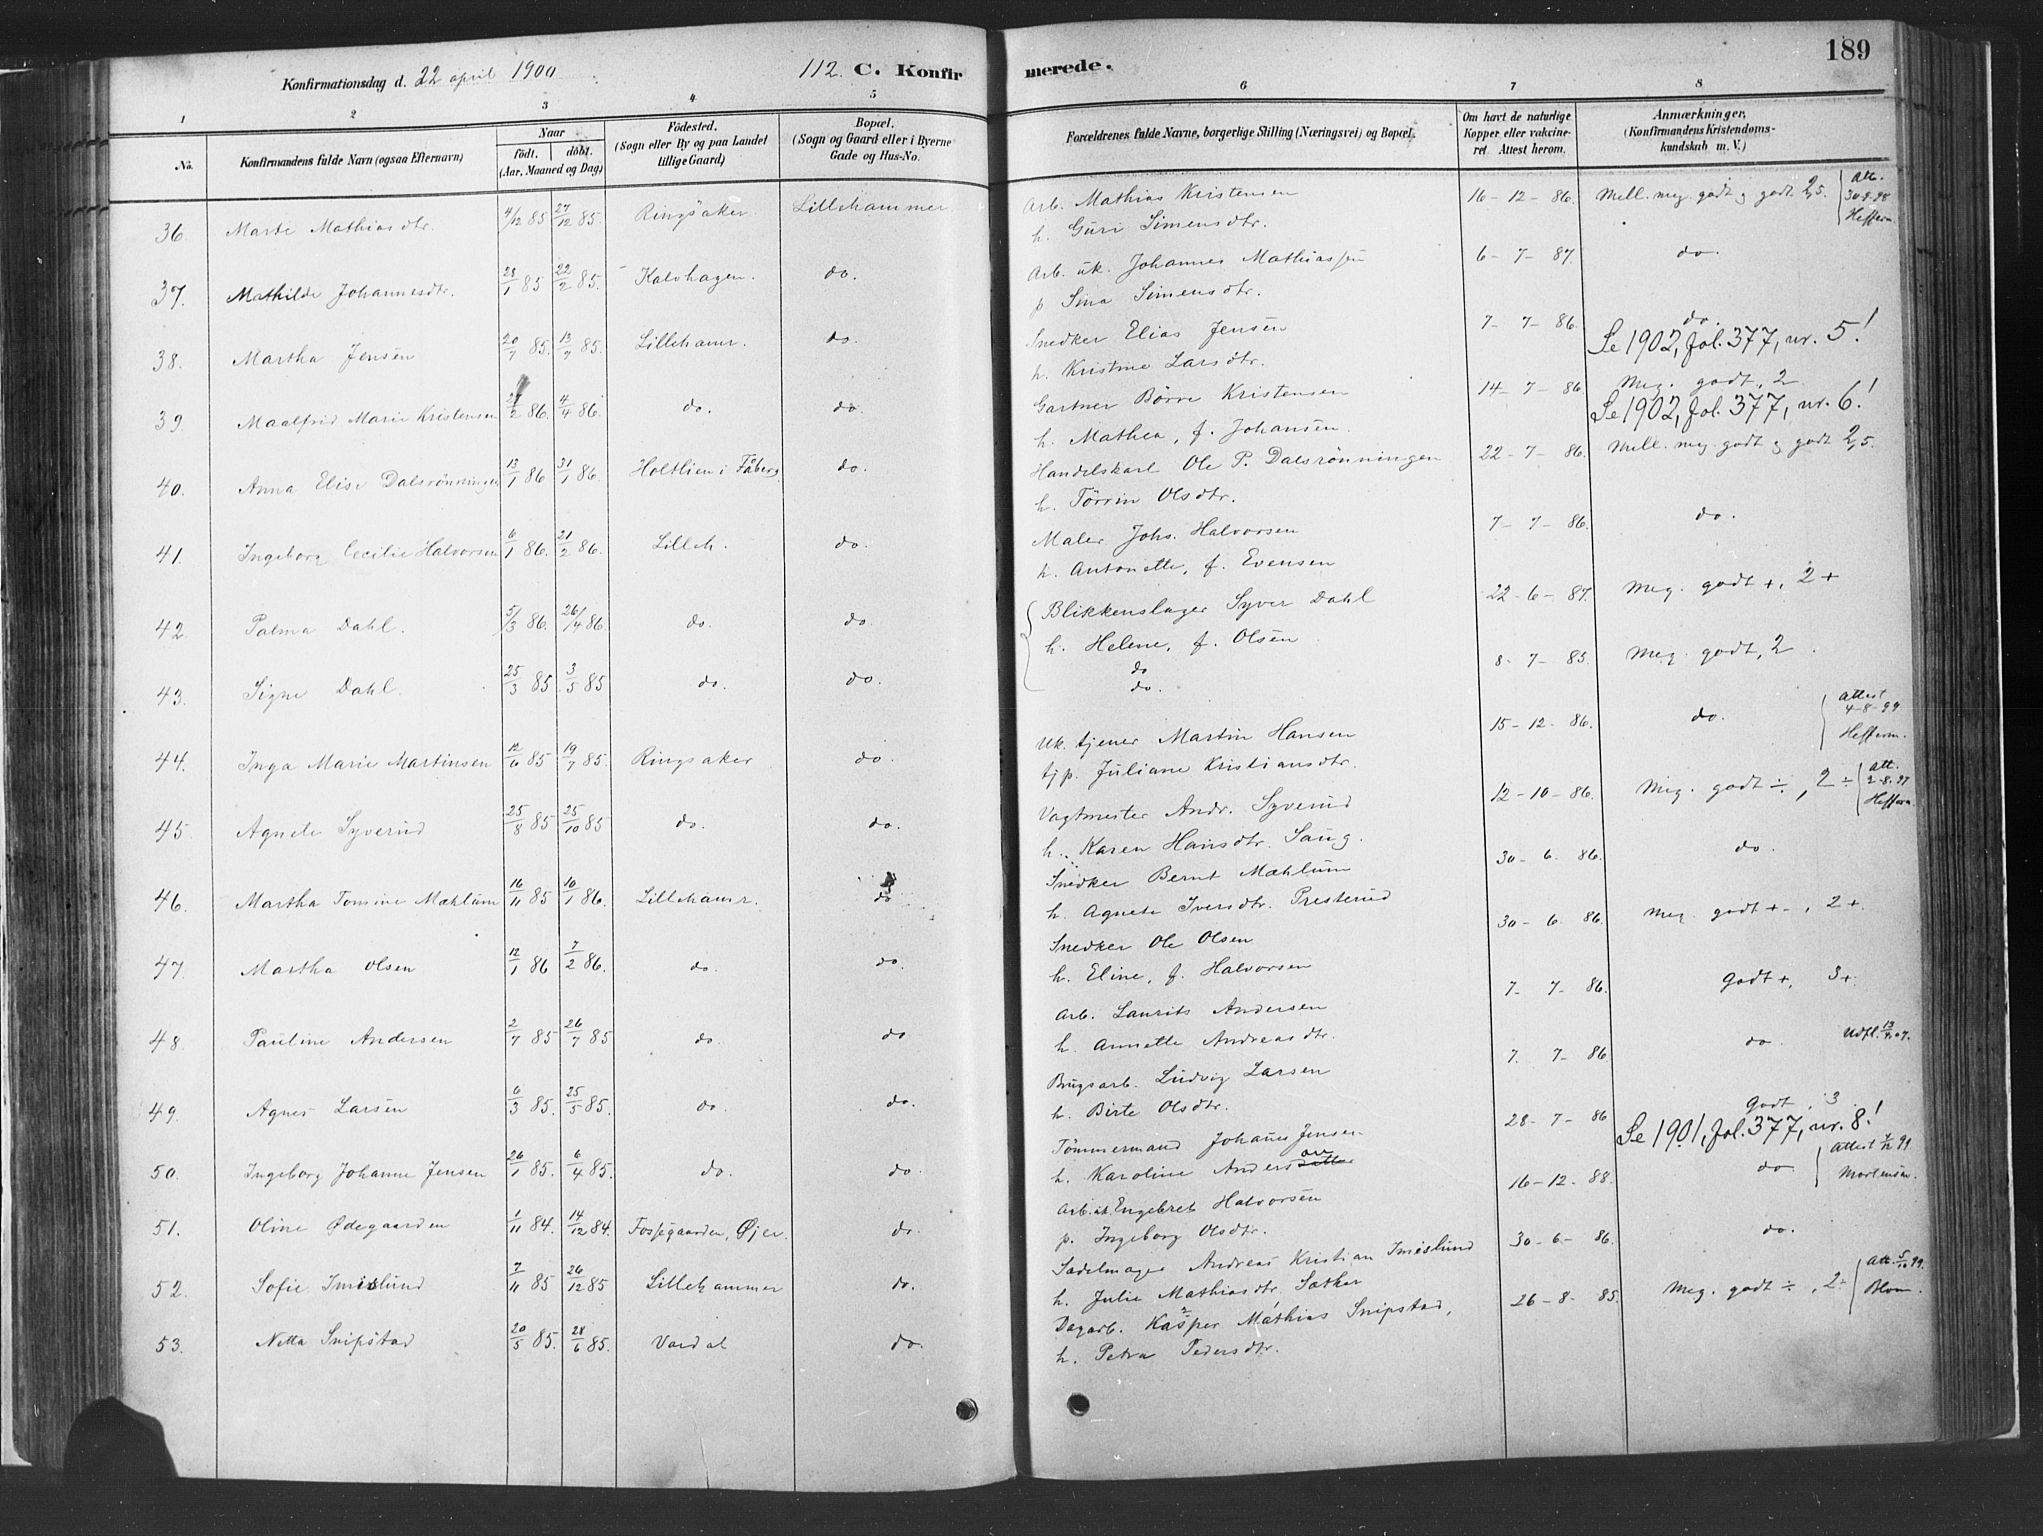 Konfirmationsdag d. 22 april 1900 112. C. Konfir merede. 189
1 2 3 4 5 6 7 8
No. Konfirmandens fulde Navn (ogsaa Efternavn) Naar født. døbt. (Aar, Maaned og Dag) Fødested. (Sogn eller By og paa Landet tillige Gaard) Bopæl. (Sogn og Gaard eller i Byerne Gade og Hus-No. Forældrenes fulde Navne, borgerlige Stilling (Næringsvei) og Bopæl. Om havt de naturlige Kopper eller vakcineret Attest herom. Anmærkninger, (Konfirmandens Kristendomskundskab m. V.)
36. Marte Mathiasdtr. 4/12 85 27/12 85. Ringsaker. Lillehammer Arb. Mathias Kristensen 16-12-86. Mell. meg. godt og godt 2,5. Att. 30-9-98 Hefferm.
h. Guri Simensdtr.
37. Mathilde Johannesdtr. 28/1 85 22/2 85. Kalvhagen. do. Arb. uk. Johannes Mathiassen 6-7-87. do.
p Sina Simensdtr.
38. Martha Jensen 20/7 85. 13/9 85. Lilleham̄r. do. Snedker Elias Jensen 7-7-86. do.
h. Kristine Larsdtr. Se 1902, fol. 377, nr. 5!
39. Maalfrid Marie Kristensen /2 86. 4/4 86. do. do. Gartner Børre Kristensen 14-7-86 Meg. godt, 2
h. Mathea, f. Johansen. Se 1902, fol. 377, nr. 6!
40. Anna Elise Dalsrønningen 13/1 86 31/1 86. Holtlien i Fåberg do. Handelskarl Ole P. Dalsrønningen 22-7-86. Mell. meg. godt og godt 2,5.
h. Tørrin Olsdtr.
41. Ingeborg Cecilie Halvorsen 6/1 86. 21/2 86. Lilleh. do. Maler Johs. Halvorsen 7-7-86. do.
h. Antonette, f. Evensen
42 Palma Dahl. 5/3 86. 26/4 86. do. do. Blikkenslager Syver Dahl 22-6-87. Meg. godt +, 2+
h. Helene, f. Olsen
43. Signe Dahl. 25/3 85. 3/5 85 do. do. do 8-7-85. Meg. godt, 2
do.
44. Inga Marie Martinsen 12/6 85 19/7 85. Ringsaker do. Uk. tjener Martin Hansen 15-12-86. do. Attest 4-8-99 Hefferm.
tjp. Juliane Kristiansdtr.
45. Agnete Syverud 25/8 85 25/10 85 do. do. Vagtmester Andr. Syverud 12-10-86. Meg. godt ÷, 2÷ Att. 2-8-97 Hefferm
h. Karen Hansdtr. Saug.
46. Martha Tomine Mæhlum 16/11 85 10/1 86. Lilleham̄r. do Snedker Bernt Mæhlum 30-6-86. do.
h. Agnete Iversdtr. Presterud
47. Martha Olsen 12/1 86 7/2 86. do. do. Snedker Ole Olsen 30-6-86 Meg. godt +, 2+
h. Eline, f. Halvorsen
48. Pauline Andersen 2/7 85 26/7 85 do. do Arb. Laurits Andersen 7-7-86. Godt +, 3+
h. Annette Andreasdtr.
49. Agnes Larsen 6/3 85. 25/5 85. do. do. Brugsarb. Ludvig Larsen 7. 7-86 do. Udfl. 13/4.07.
h. Birte Olsdtr.
50. Ingeborg Johanne Jensen 26/1 85. 6/4 85. do. do. Tømmermand Johan̄es Jensen 28-7-86 Godt, 3
h. Karoline Anders Se 1901, fol. 377, nr. 8!
51. Oline Ødegaarden 1/11 84. 14/12 84. Fossegaarden, Øjer. do. Arb. uk. Engebret Halvorsen 16-12-88. do Attest 99 Mortensen.
p. Ingeborg Olsdtr.
52. Sofie Imislund 7/11 85 26/12 85 Lillehammer do. Sadelmager Andreas Kristian Imislund 30-6-86. do.
h. Julie Mathiasdtr. Sæther
53. Netta Snipstad 20/5 85. 28/6 85. Vardal do. Dagarb. Kasper Mathias Snipstad, 26-8-85. Meg. godt ÷, 2÷ Att. 5/10 99. Blom.
h. Petra Pedersdtr.